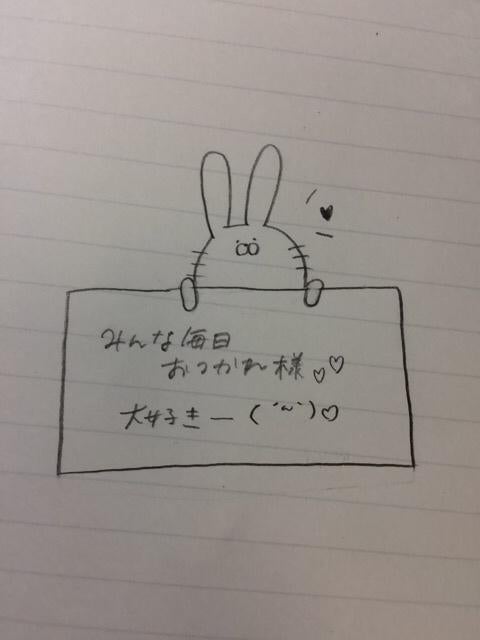 みんな毎日
おつかれ様♡♡
大好きー(´~`)♡